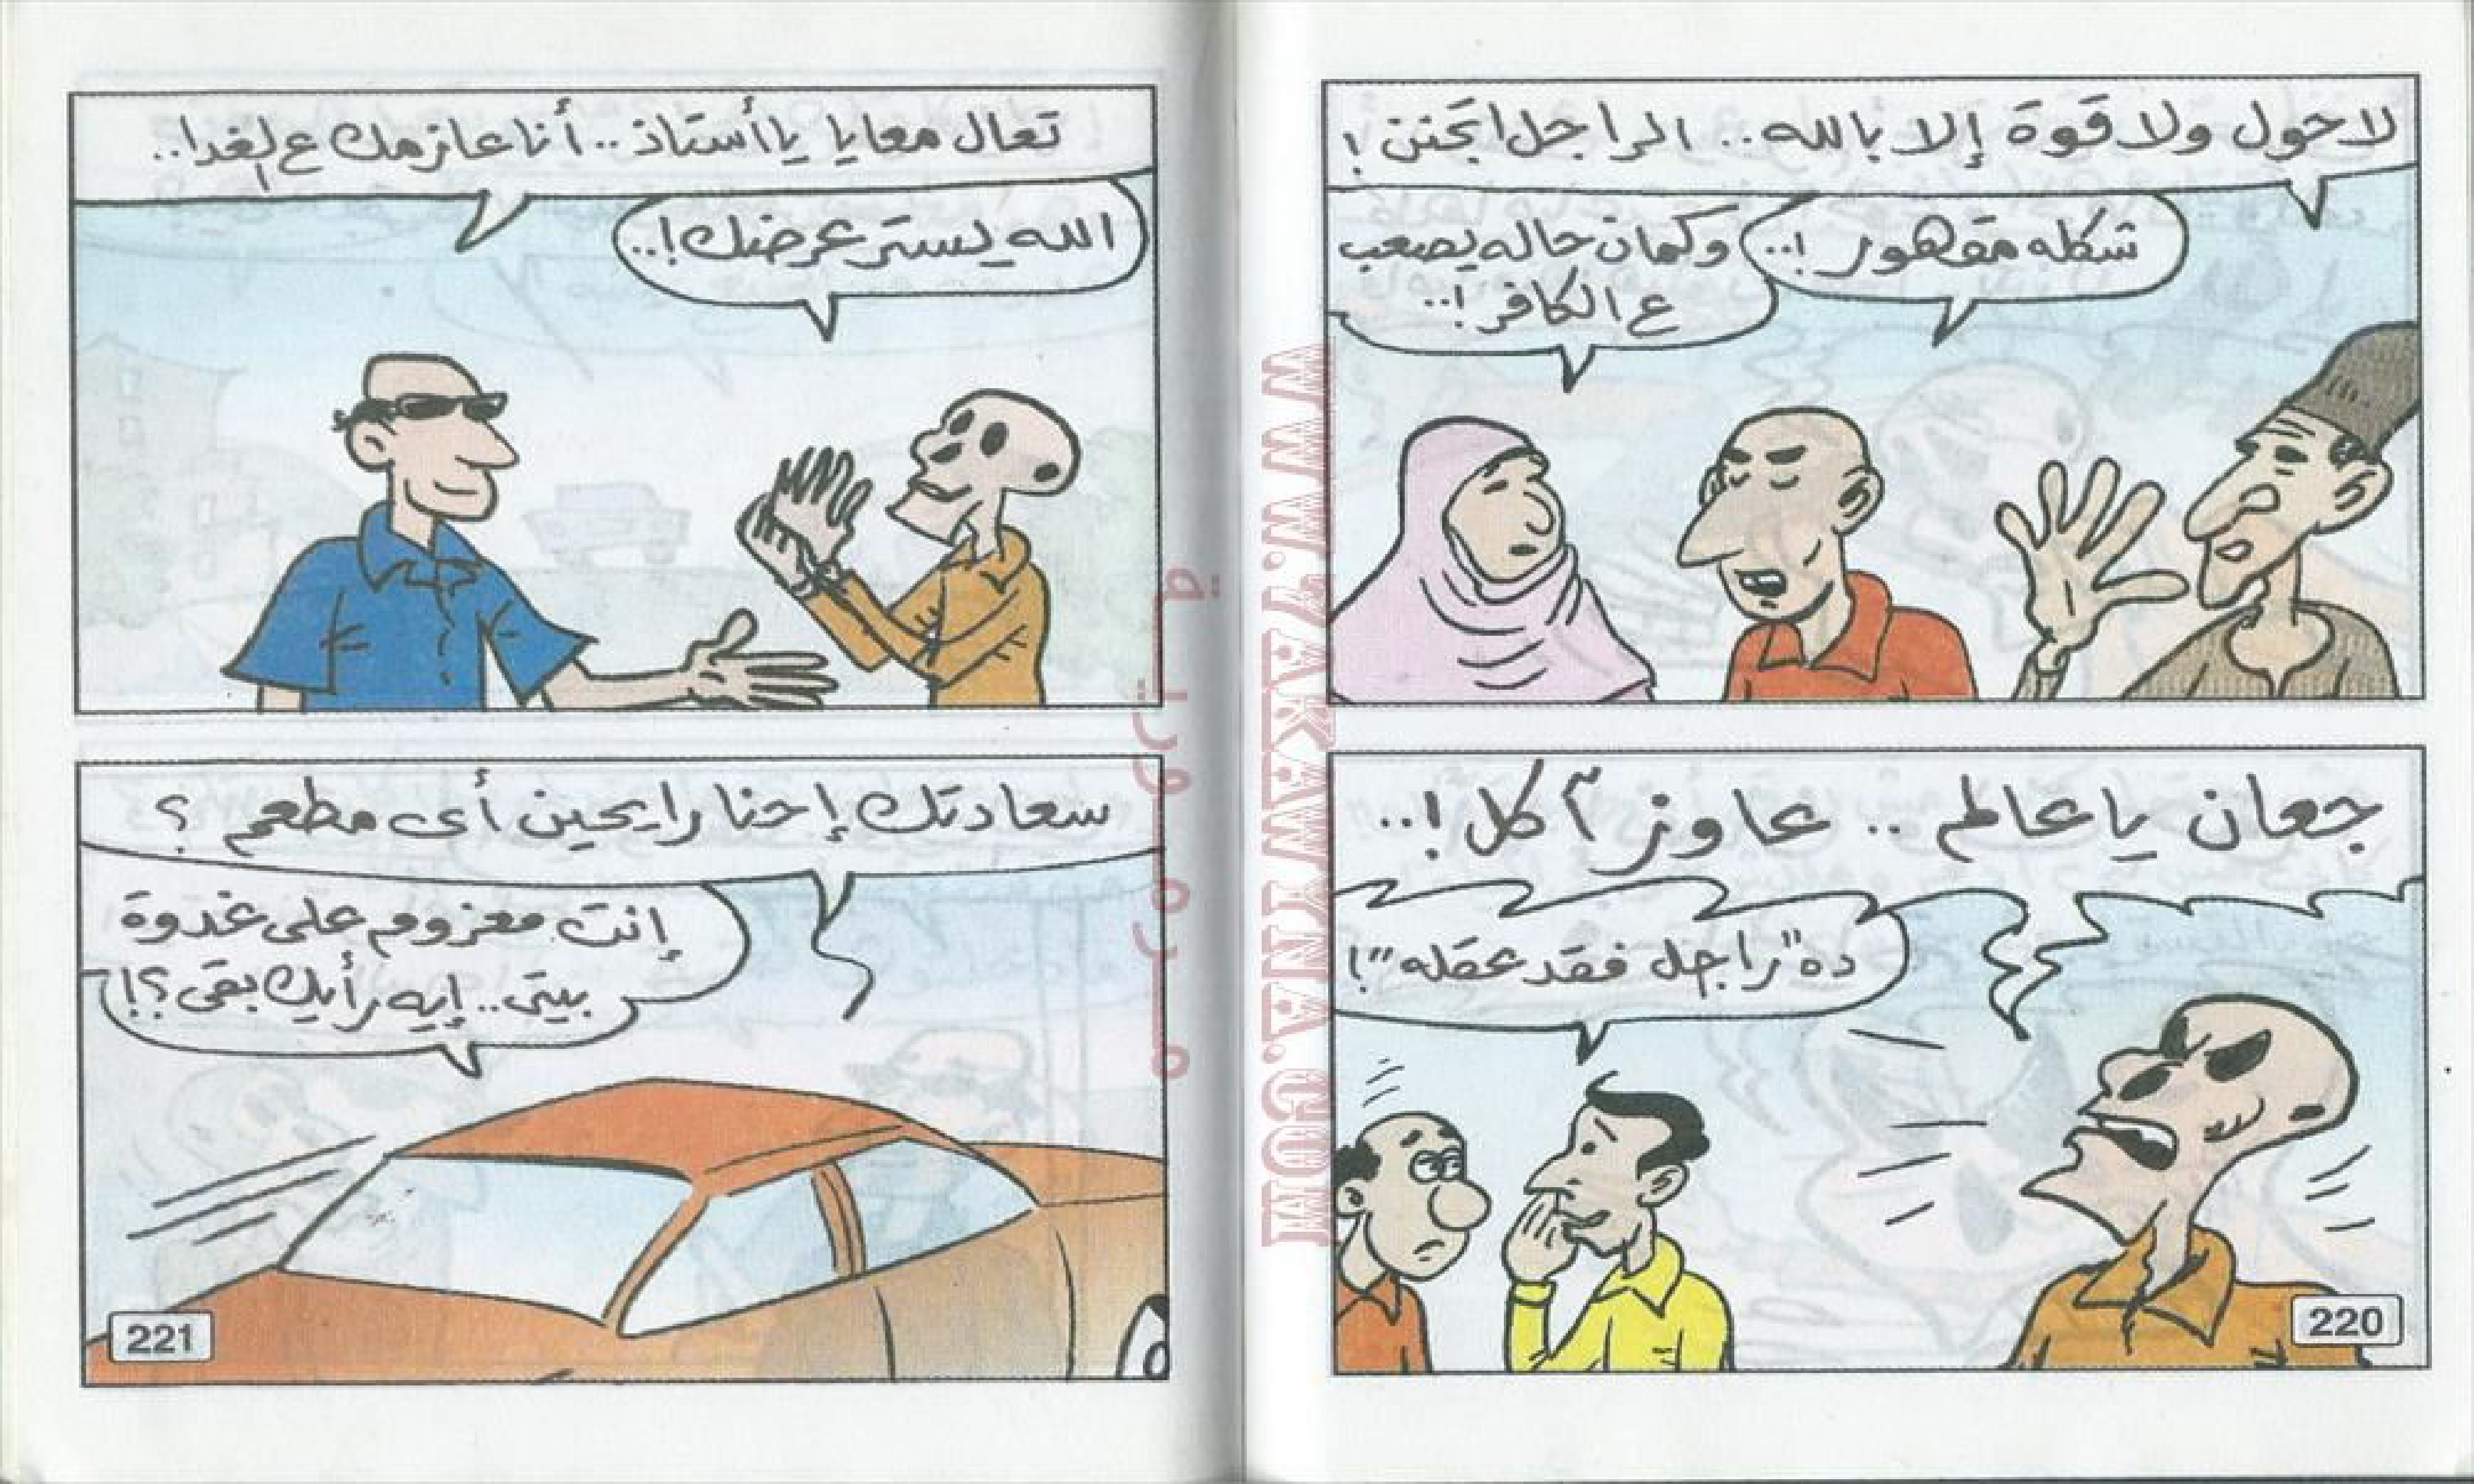 لا حول ولا قوة إلا بالله.. الراجل اتجنن!
شكله مقهور!..
وكمان حاله يصعب
ع الكافر!..
جعان يا عالم.. عاوز آكل!..
ده "راجل فقد عقله"!
220
تعال معايا يا أستاذ.. أنا عازمك ع الغدا..
الله يستر عرضك!..
سعادتك إحنا رايحين أى مطعم؟
إنت معزوم على غدوة
بيتى.. إيه رأيك بقى؟!
221